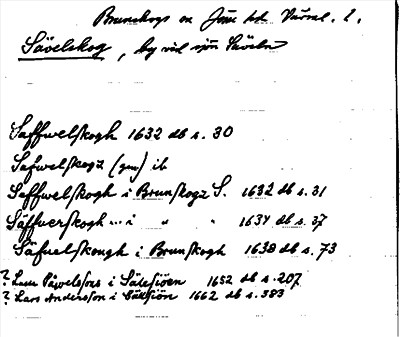 Brunskogs sn Jösse hd Värml. l.
Sävelskog, by vid sjön Säveln
Saffwelskogh 1632 db s. 30
Safwelskogz (gen) ib
Saffwelskogh i Brunskogz S. 1632 db s. 31
Säffverskogh ... i " " 1634 db s. 37
Säfuelskough i Brunskogh 1638 db s. 73
? Lars Påwelsson i Säfesjöen 1652 db s. 207
? Lars Andersson i 1662 db s. 383